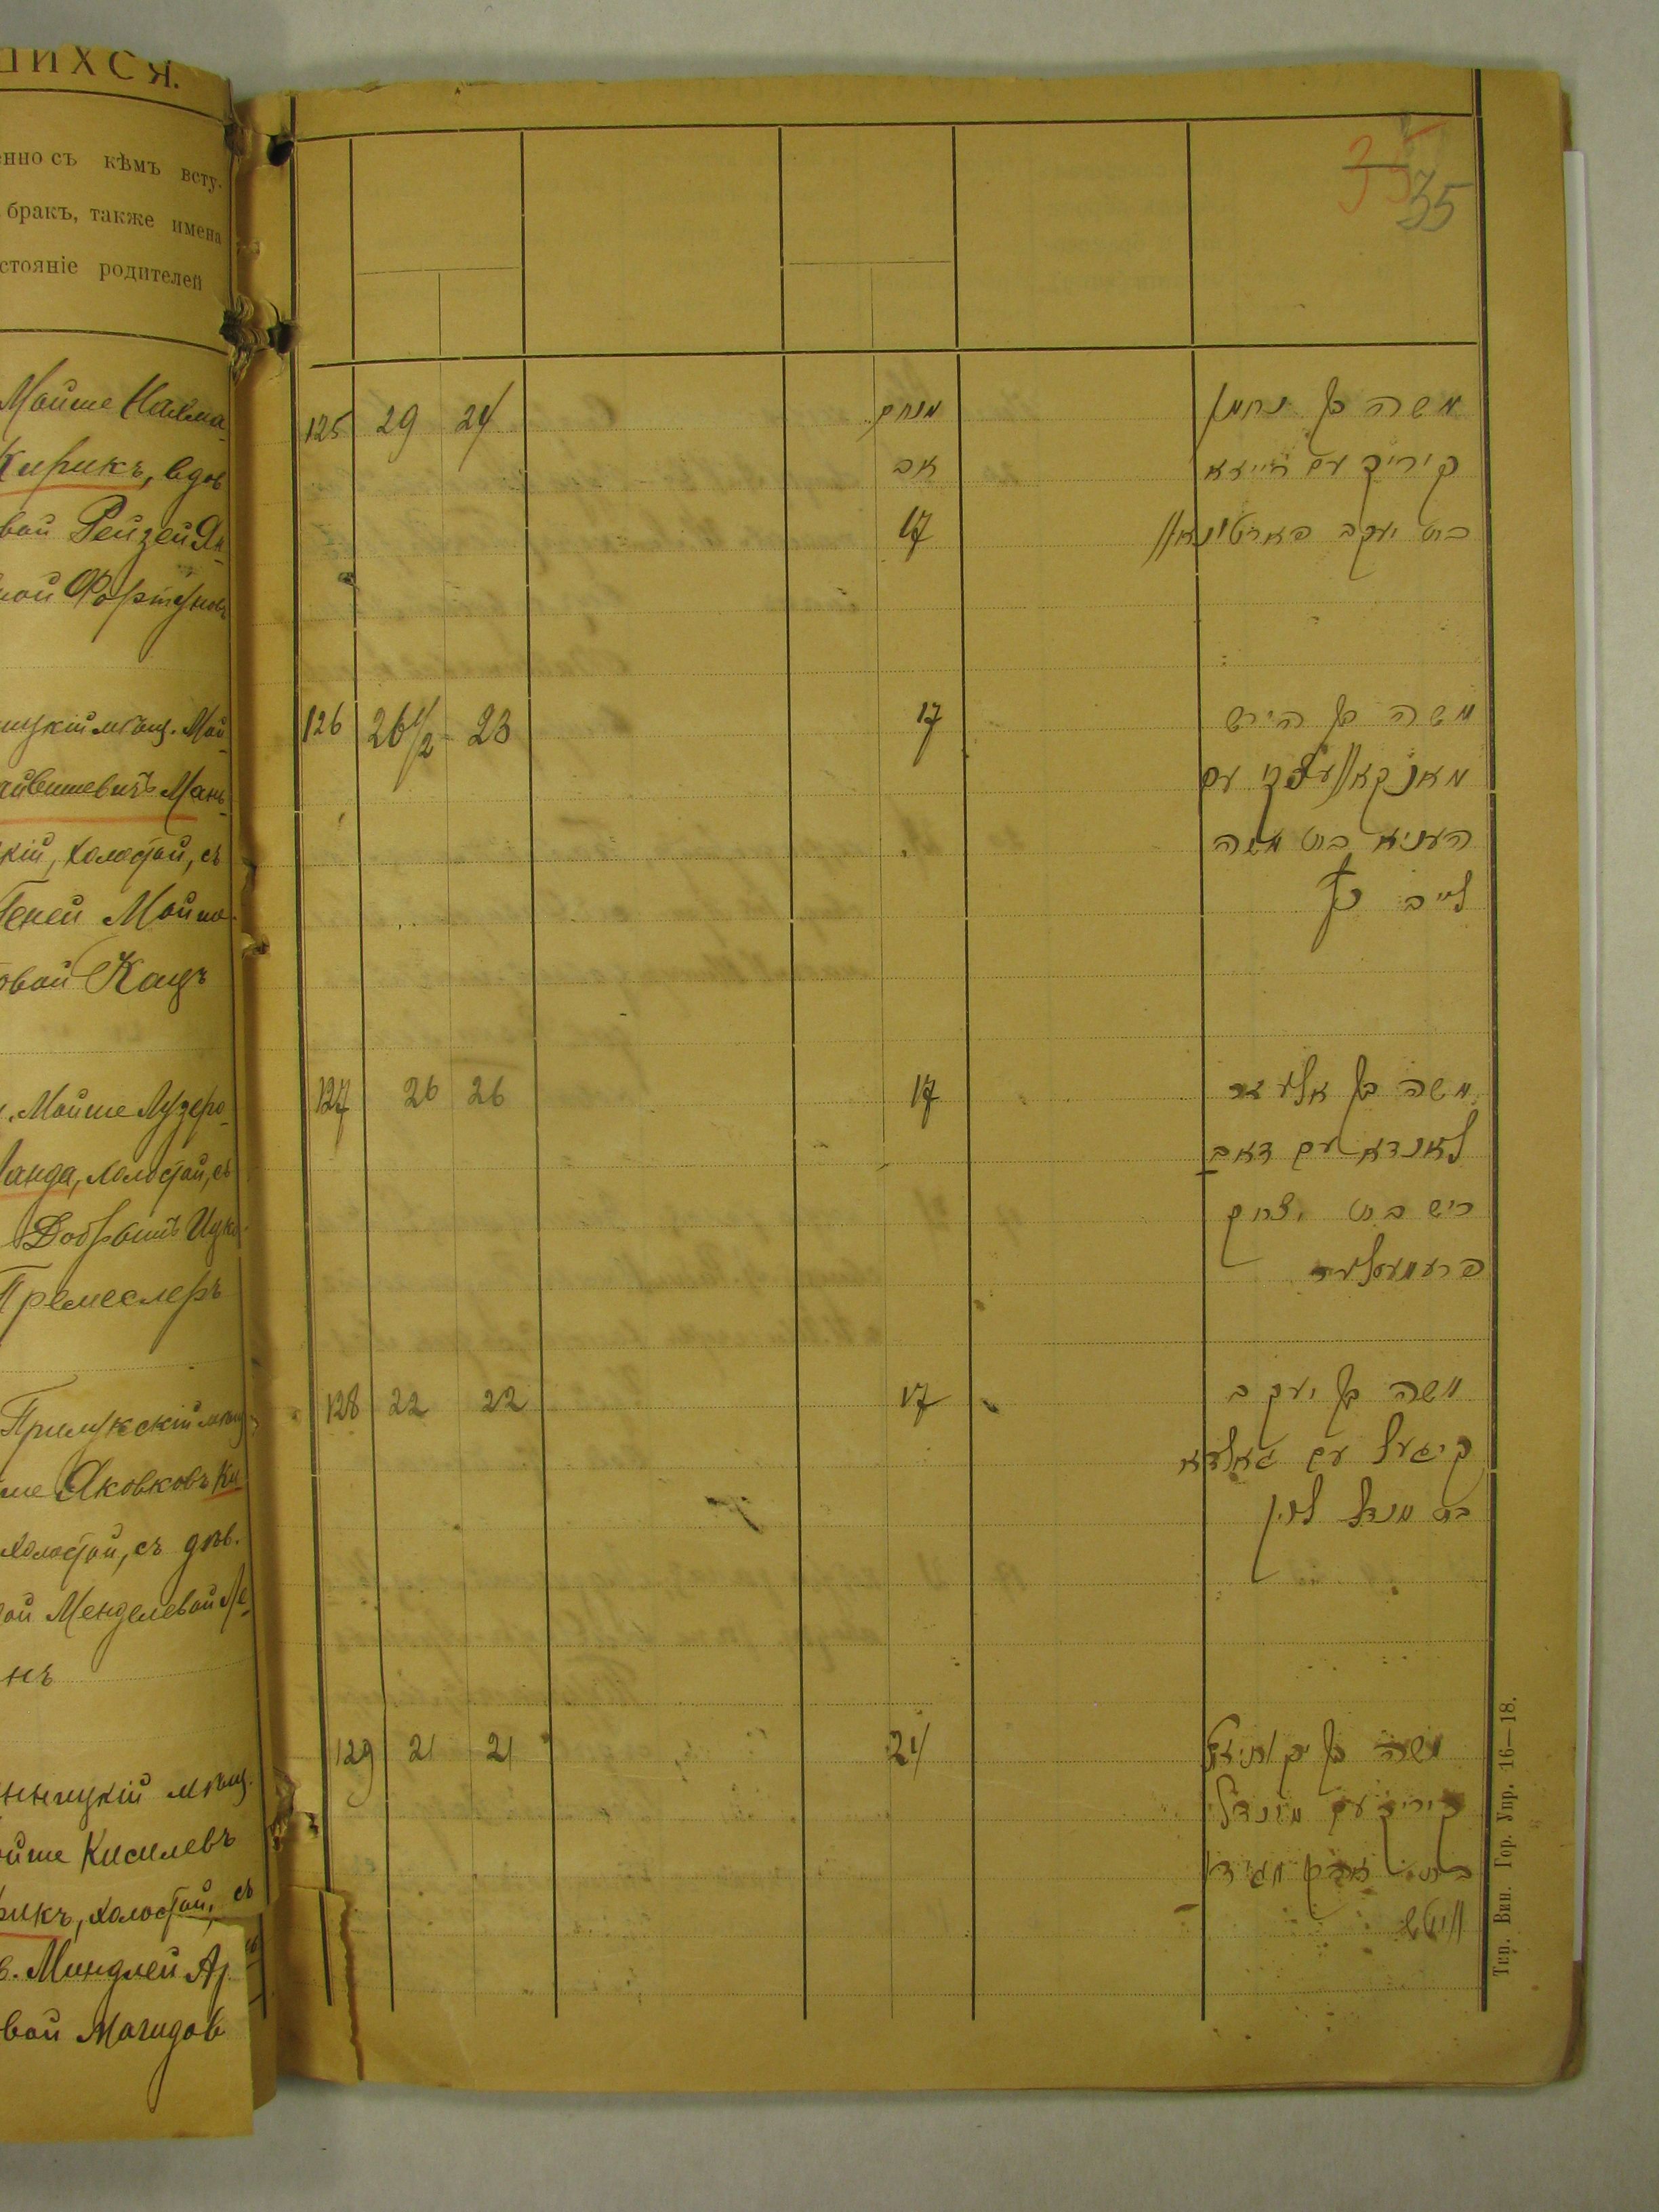 ШИХСЯ.
енно съ кѣмъ всту-
бракъ, также имена
стояніе родителей
Мойше Нахма-
Кирикъ, вдов
вой Рейзей Ян-
ной Фортунов
Мой-
Мань
кій, холостой, съ
Геней Мошко-
овой Кацъ
Мойше Лузеро-
Ланда, холостой, съ
Добрышъ Ицко-
Премеслеръ
Прилукскій мѣщ.
ше Яковковъ Ки-
холостой, съ дѣв.
ой Менделевой Ле-
нъ
нницкій мѣщ.
ойше Кисилевъ
рикъ, холостой, съ
в. Миндлей Ар-
вой Магидов
35
35
125 29 24
מנחם
אב
17
משה בן נחמן
קיריק עם רייזא
בת יעקב פארטונאוו
126 26 1/2 23
17
משה בן הירש
מאנקאווצקי עם
העניא בת משה
לייב כץ
127 26 26
17
משה בן אליעזר
לאנדא עם דאב
ריש בת יצחק
פרעמעסלער
128 22 22
17
משה בן יעקב
קיגעל עם גאלדא
בת מנדל לוין
129 21 21
24
משה בן יקותיאל
קיריק עם מינדל
בת אהרן מגידא
וויטש
Тип. Вин. Гор. Упр. 16—18.